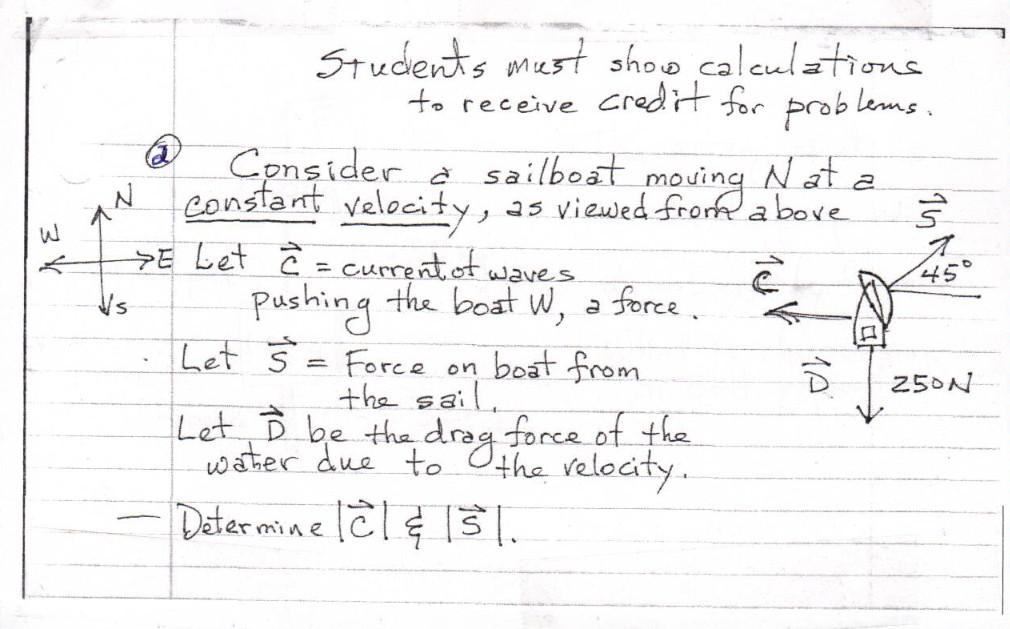 Students must show calculations
to receive credit for problems.
② Consider a sailboat moving N at a
constant velocity, as viewed from above
N
W
E
S
Let C⃗ = current of waves
pushing the boat W, a force.
Let S⃗ = Force on boat from
the sail.
Let D⃗ be the drag force of the
water due to the velocity.
— Determine |C⃗| & |S⃗|.
S⃗
45°
C⃗
D⃗
250N